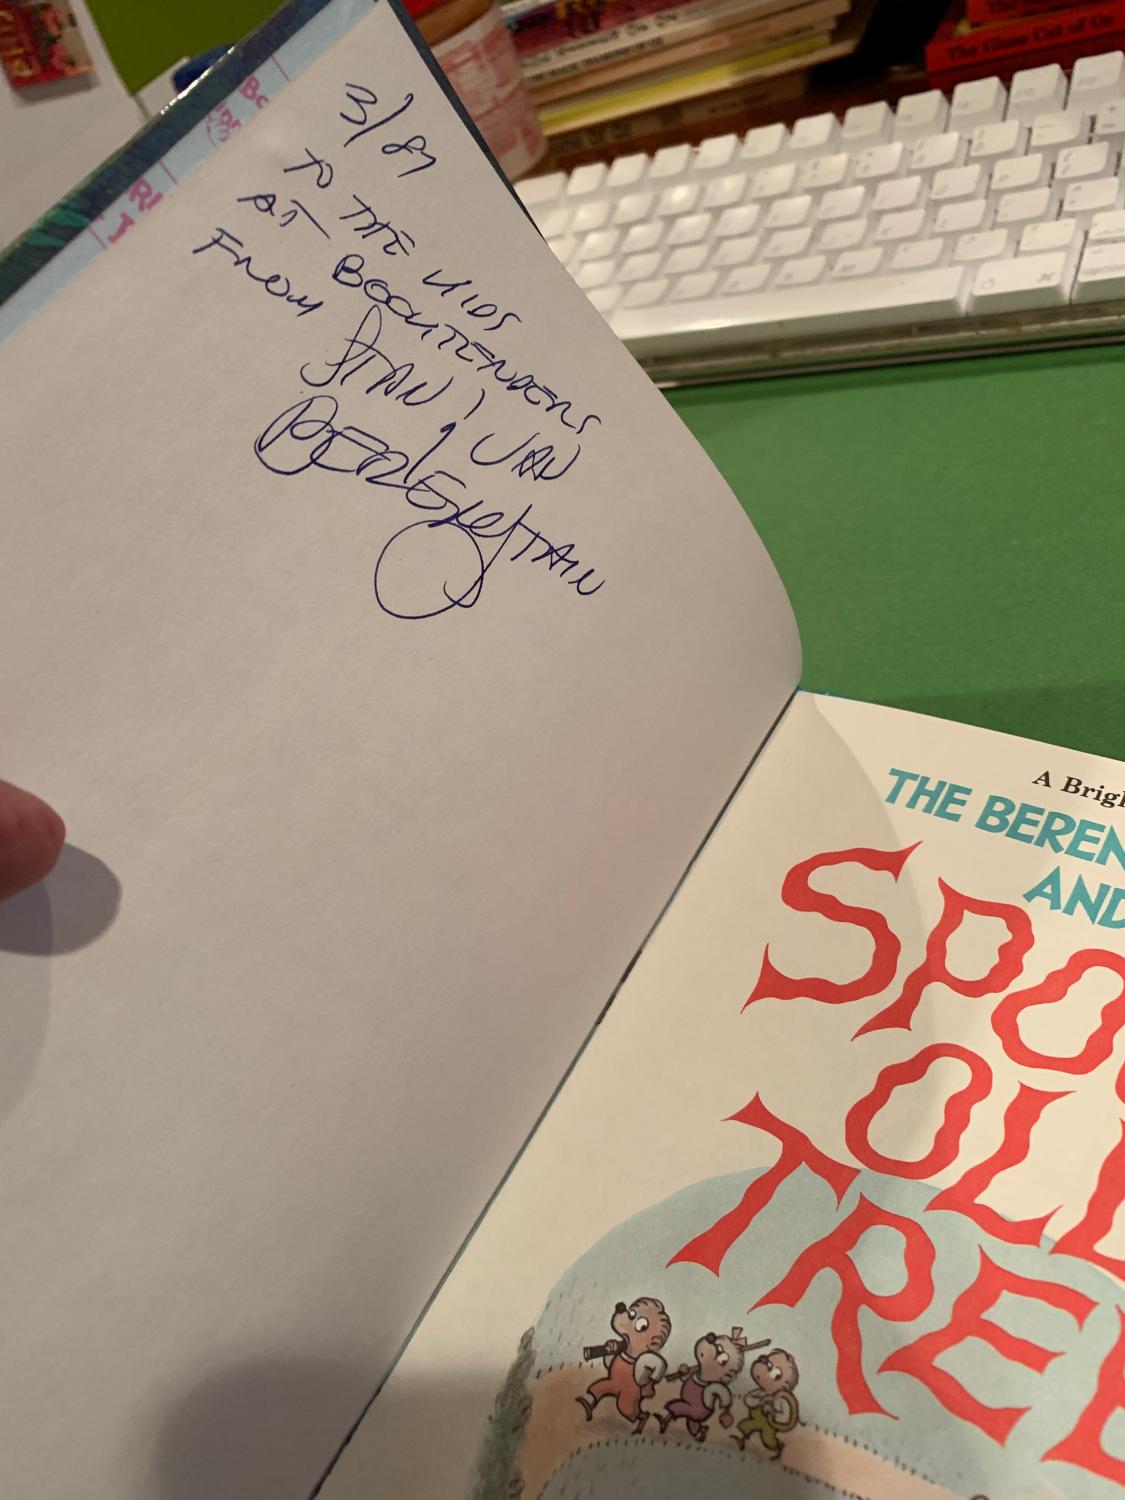 3/87
TO THE KIDS
AT BOOKTENDERS
FROM
STAN & JAN
BERENSTAIN
A Brigh
THE BEREN
AND
SPO
OL
TRE
The Glass Cat of Oz